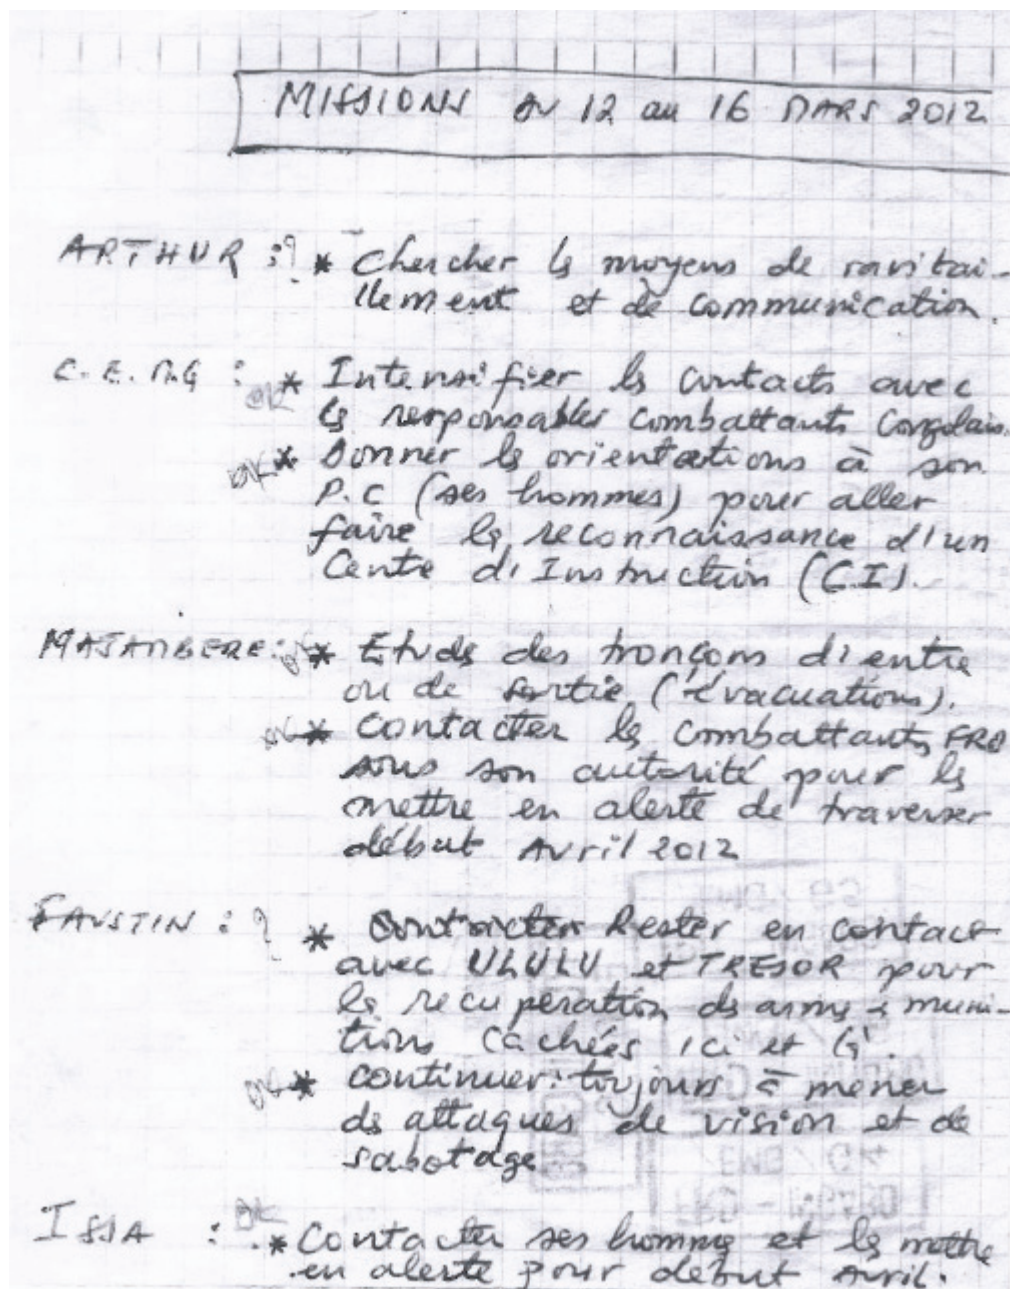 MISSIONS DU 12 au 16 MARS 2012
ARTHUR :? * Chercher les moyens de ravitai-
llement et de communication.
C.E.M.G : OK * Intensifier les contacts avec
les responsables combattants Congolais.
OK * Donner les orientations à son
P.C (ses hommes) pour aller
faire la reconnaissance d'un
Centre d'Instruction (C.I).
MAJAMBERE: OK * Etude des tronçons d'entre
ou de sortie (évacuations).
OK * Contacter les combattants
sous son autorité pour les
mettre en alerte de traverser
début Avril 2012
FAUSTIN : ? * Contacter Rester en contact
avec ULULU et TRESOR pour
la recuperation des arms & muni-
tions cachées ici et là.
OK * continuer toujours à mener
des attaques de vision et de
sabotage
ISSA : OK * Contacter ses hommes et les mettre
en alerte pour début Avril.
EMG / G4